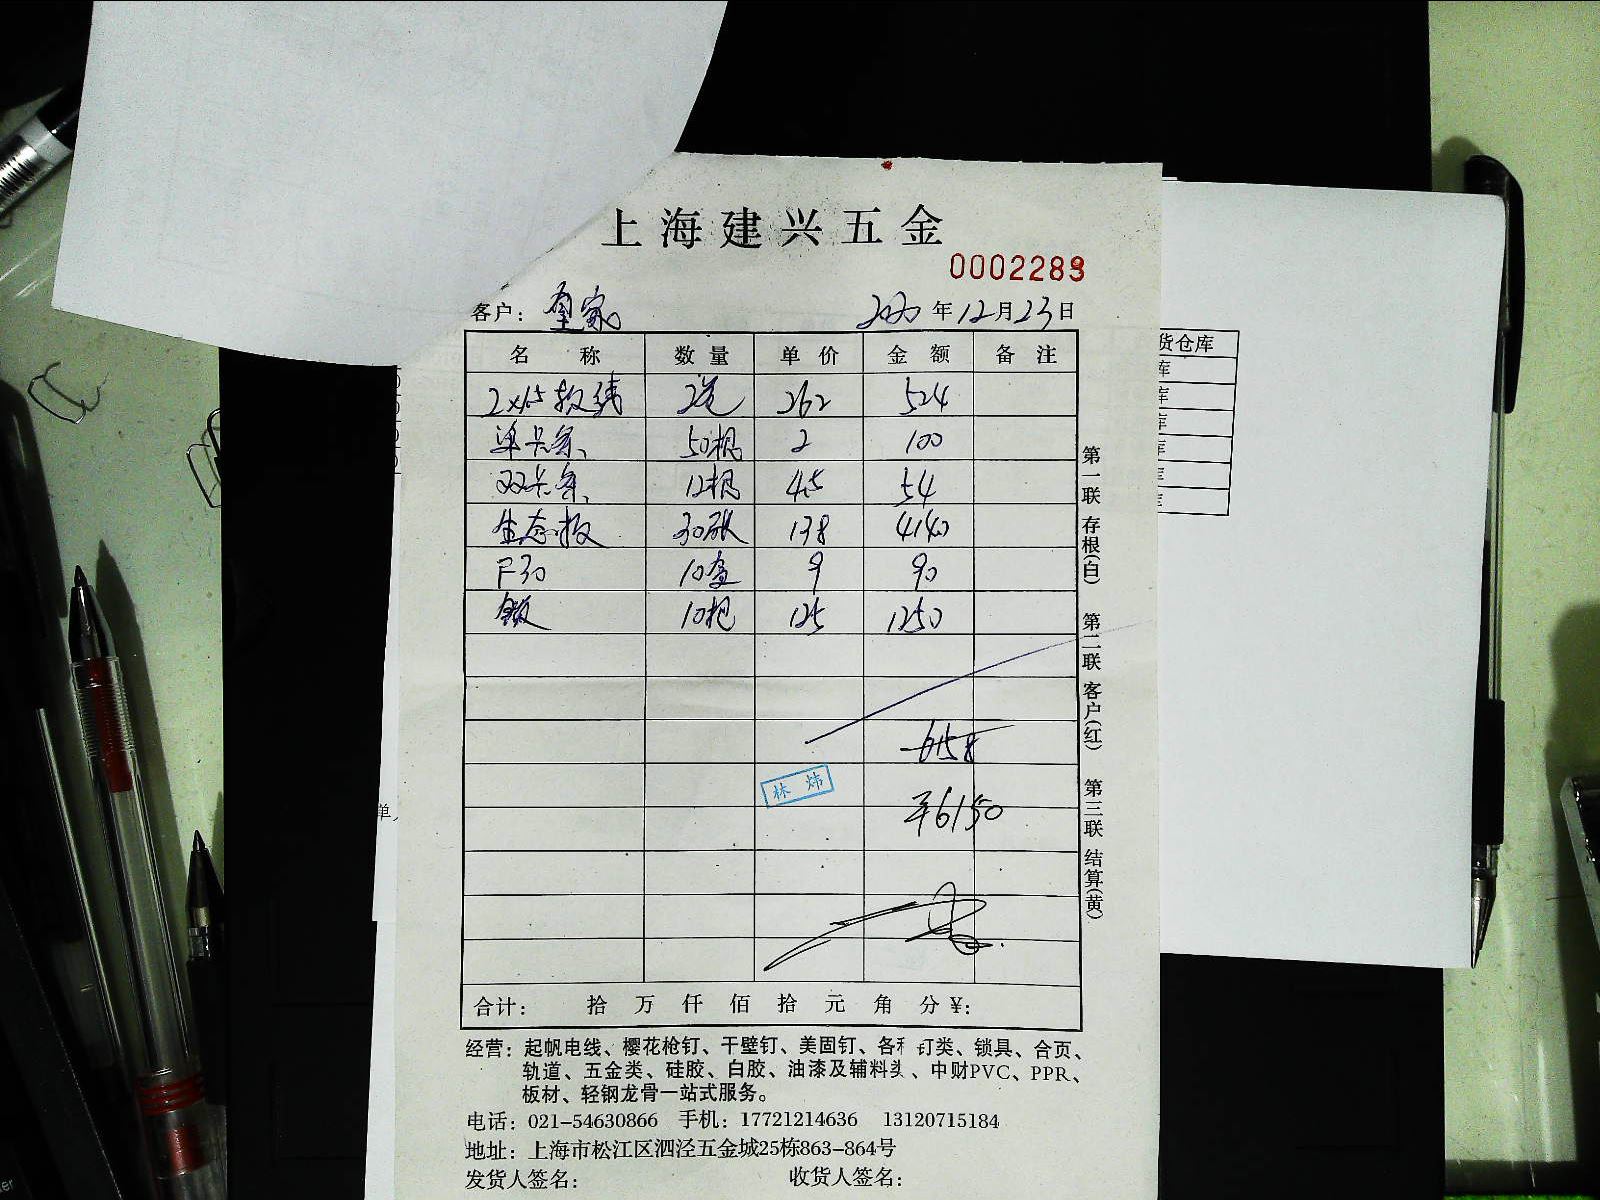 上海建兴五金
0002289
客户: 皇家 2020年12月23日
名称 数量 单价 金额 备注
2×1.5软线 2卷 262 524
单卡条 50根 2 100
双卡条 12根 4.5 54
生态板 30张 138 4140
F30 10盒 9 90
10把 125 1250
6158
林炜
¥6150
合计: 拾 万 仟 佰 拾 元 角 分 ¥:
经营: 起帆电线、樱花枪钉、干壁钉、美固钉、各种钉类、锁具、合页、
轨道、五金类、硅胶、白胶、油漆及辅料类、中财PVC、PPR、
板材、轻钢龙骨一站式服务。
电话: 021-54630866 手机: 17721214636 13120715184
地址: 上海市松江区泗泾五金城25栋863-864号
发货人签名: 收货人签名:
第一联 存根(白) 第二联 客户(红) 第三联 结算(黄)
货仓库
库
库
库
库
库
单